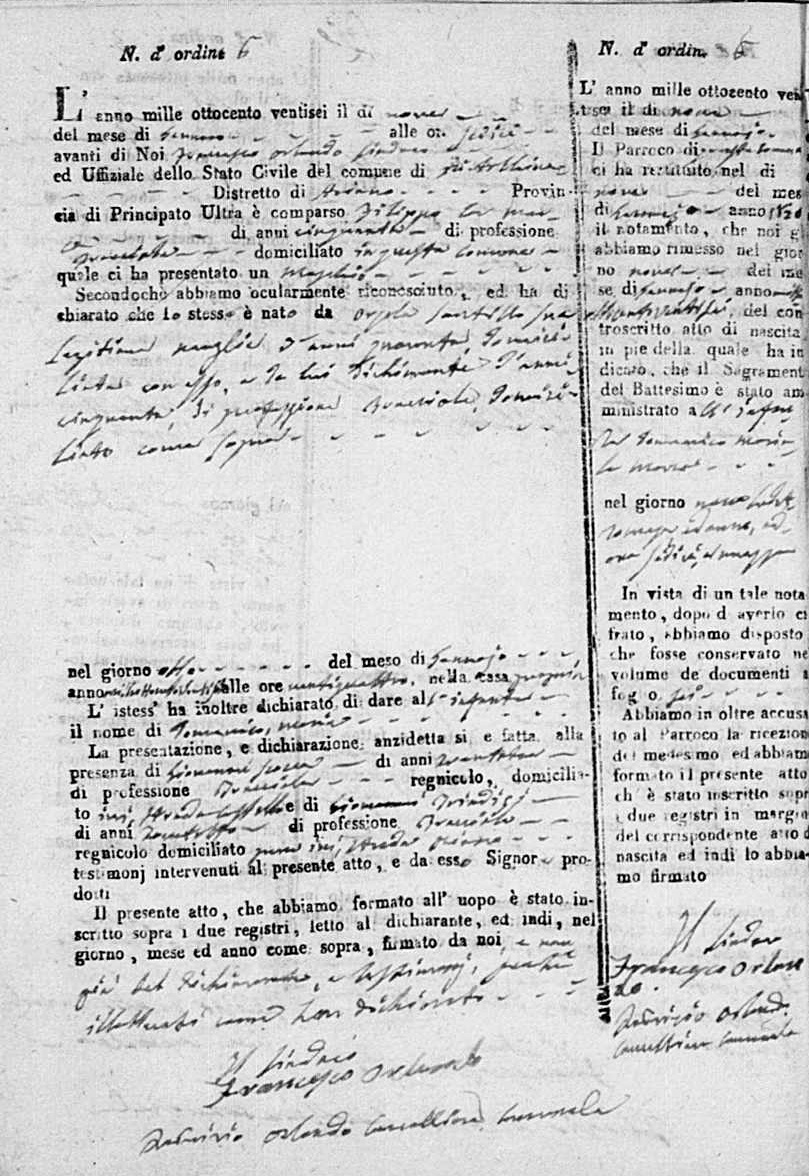 N. d' ordine 6
L' anno mille ottocento ventisei il dì nove
del mese di Gennaro alle ore sedici
avanti di Noi Francesco Orlando Sindaco
ed Uffiziale dello Stato Civile del comune di
Distretto di Ariano Provin-
cia di Principato Ultra è comparso Filippo
di anni cinquanta di professione
Bracciale domiciliato in questa comune
quale ci ha presentato un maschio
Secondochè abbiamo ocularmente riconosciuto, ed ha di
chiarato che lo stesso è nato da Orsola sua
legitima moglie d'anni quaranta domici-
liata con esso, e da lui dichiarante d'anni
cinquanta, di professione Bracciale, domici-
liato come sopra
nel giorno otto del mese di Gennajo
anno alle ore ventiquattro, nella casa propria
L' istess' ha inoltre dichiarato di dare all' infante
il nome di Domenico, Maria
La presentazione, e dichiarazione anzidetta si è fatta alla
presenza di Giovanni di anni
di professione Bracciale regnicolo, domicilia-
to ivi, Strada e di Giovanni
di anni di professione Bracciale
regnicolo domiciliato pure ivi, Strada
testimonj intervenuti al presente atto, e da esso Signore pro-
dotti
Il presente atto, che abbiamo formato all' uopo è stato in-
scritto sopra i due registri, letto al dichiarante, ed indi, nel
giorno, mese ed anno come sopra, firmato da noi, e non
già dal dichiarante, e testimonj, perchè
illetterati come han dichiarato
Il Sindaco
Francesco Orlando
Orlando Cancelliere Comunale
N. d' ordin. 6
L' anno mille ottocento ven
tisei il dì nove
del mese di Gennajo
Il Parroco di questa comune
ci ha restituito nel dì
nove del mes
di Gennajo anno 1826
il notamento, che noi g
abbiamo rimesso nel gior
no nove del me
se di Gennajo anno mille
ottocentoventisei, del con
troscritto atto di nascita
in piè della quale ha in
dicato, che il Sagrament
del Battesimo è stato am
ministrato a
Domenico Maria
nel giorno nove
In vista di un tale nota
mento, dopo d averlo ci
frato, abbiamo disposto
che fosse conservato ne
volume de' documenti a
foglo sei
Abbiamo in oltre accusa
to al Parroco la ricezion
del medesimo ed abbiam
formato il presente atto
ch' è stato inscritto sopr
i due registri in margin
del corrispondente atto d
nascita ed indi lo abbia-
mo firmato
Il Sindaco
Francesco Orlan
do
Orlando
Cancelliere Comunale